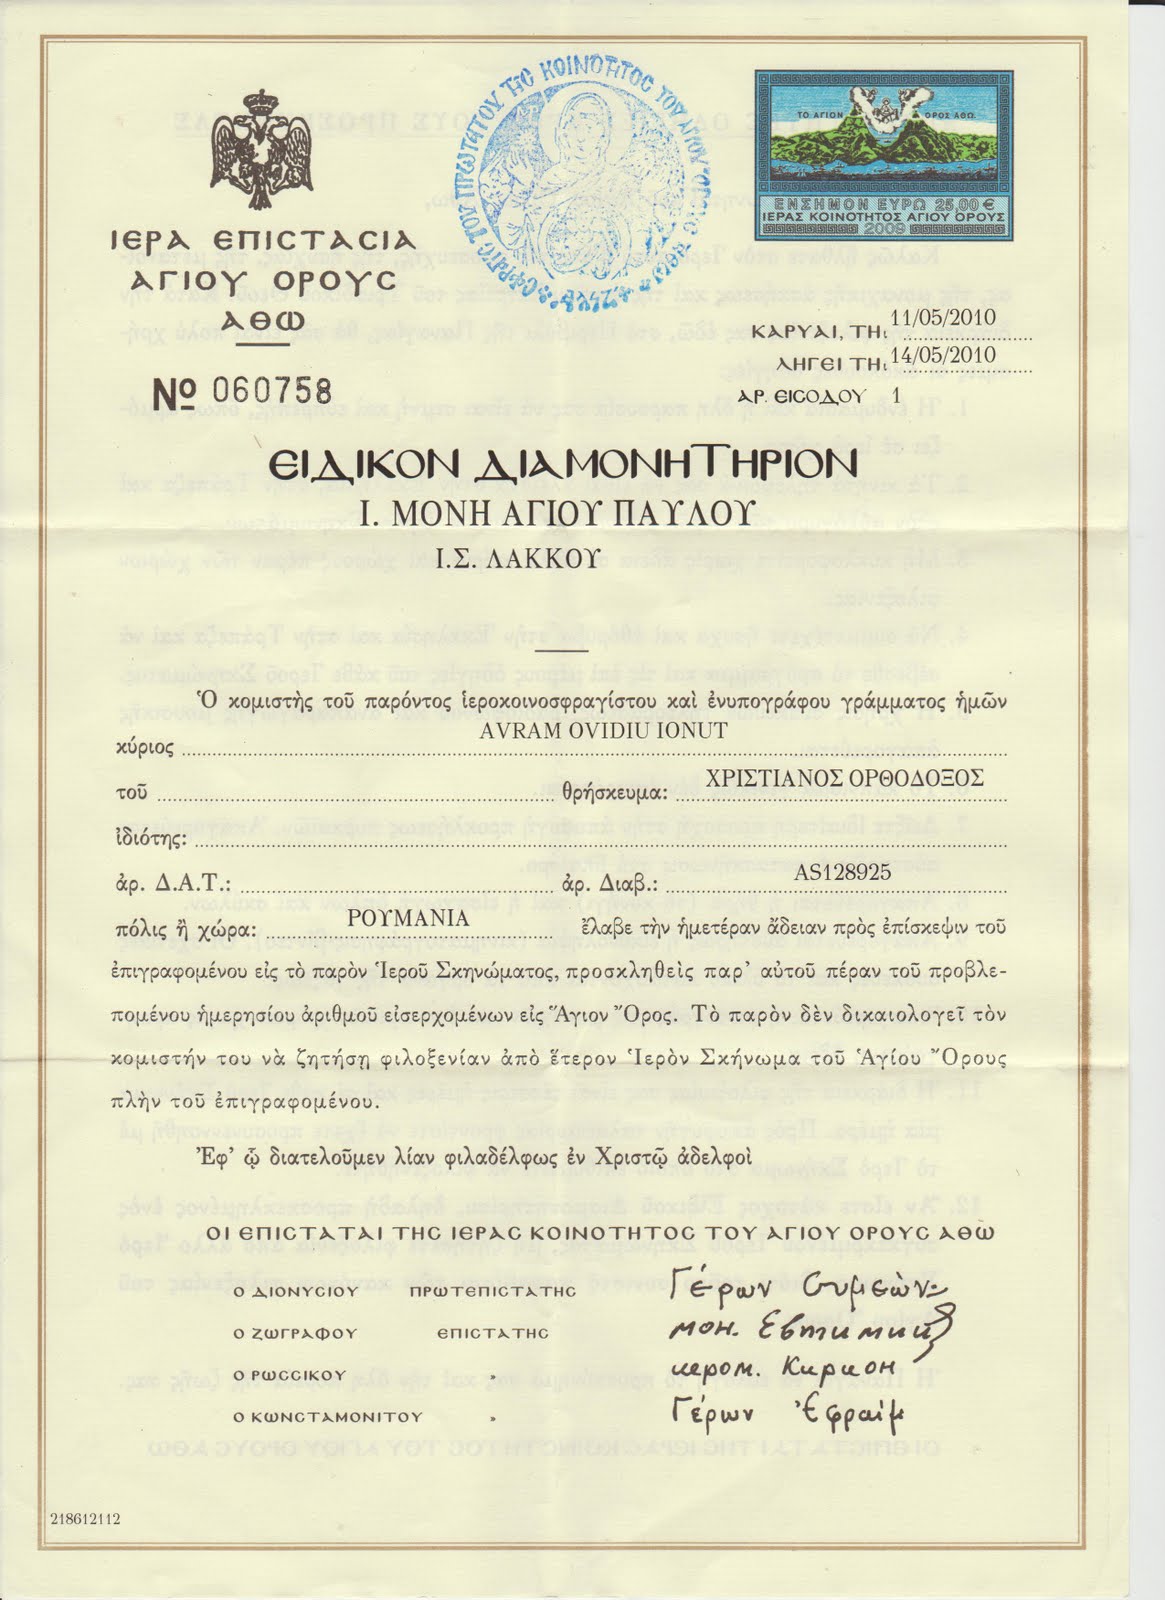 ΣΦΡΑΓΙΣ ΤΟΥ ΠΡΩΤΑΤΟΥ ΤΗΣ ΚΟΙΝΟΤΗΤΟΣ ΤΟΥ ΑΓΙΟΥ ΟΡΟΥΣ ΑΘΩ
ΤΟ ΑΓΙΟΝ ΟΡΟΣ ΑΘΩ
ΕΝΣΗΜΟΝ ΕΥΡΩ 25,00 €
ΙΕΡΑΣ ΚΟΙΝΟΤΗΤΟΣ ΑΓΙΟΥ ΟΡΟΥΣ
2009
ΙΕΡΑ ΕΠΙΣΤΑΣΙΑ
ΑΓΙΟΥ ΟΡΟΥΣ
ΑΘΩ
ΚΑΡΥΑΙ, ΤΗ: 11/05/2010
ΛΗΓΕΙ ΤΗ: 14/05/2010
ΑΡ. ΕΙΣΟΔΟΥ 1
Nº 060758
ΕΙΔΙΚΟΝ ΔΙΑΜΟΝΗΤΗΡΙΟΝ
Ι. ΜΟΝΗ ΑΓΙΟΥ ΠΑΥΛΟΥ
Ι.Σ. ΛΑΚΚΟΥ
Ὁ κομιστὴς τοῦ παρόντος ἱεροκοινοσφραγίστου καὶ ἐνυπογράφου γράμματος ἡμῶν
κύριος AVRAM OVIDIU IONUT
τοῦ θρήσκευμα: ΧΡΙΣΤΙΑΝΟΣ ΟΡΘΟΔΟΞΟΣ
ἰδιότης:
ἀρ. Δ.Α.Τ.: ἀρ. Διαβ.: AS128925
πόλις ἢ χώρα: ΡΟΥΜΑΝΙΑ ἔλαβε τὴν ἡμετέραν ἄδειαν πρὸς ἐπίσκεψιν τοῦ
ἐπιγραφομένου εἰς τὸ παρὸν Ἱεροῦ Σκηνώματος, προσκληθεὶς παρ' αὐτοῦ πέραν τοῦ προβλε-
πομένου ἡμερησίου ἀριθμοῦ εἰσερχομένων εἰς Ἅγιον Ὄρος. Τὸ παρὸν δὲν δικαιολογεῖ τὸν
κομιστήν του νὰ ζητήσῃ φιλοξενίαν ἀπὸ ἕτερον Ἱερὸν Σκήνωμα τοῦ Ἁγίου Ὄρους
πλὴν τοῦ ἐπιγραφομένου.
Ἐφ' ᾧ διατελοῦμεν λίαν φιλαδέλφως ἐν Χριστῷ ἀδελφοὶ
ΟΙ ΕΠΙΣΤΑΤΑΙ ΤΗΣ ΙΕΡΑΣ ΚΟΙΝΟΤΗΤΟΣ ΤΟΥ ΑΓΙΟΥ ΟΡΟΥΣ ΑΘΩ
Ο ΔΙΟΝΥΣΙΟΥ ΠΡΩΤΕΠΙΣΤΑΤΗΣ Γέρων Συμεών
Ο ΖΩΓΡΑΦΟΥ ΕΠΙΣΤΑΤΗΣ мон. Евтимий
Ο ΡΩΣΣΙΚΟΥ " иером. Кирион
Ο ΚΩΝΣΤΑΜΟΝΙΤΟΥ " Γέρων Ἐφραίμ
218612112